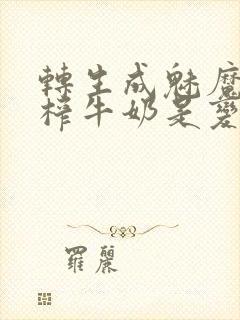 轉生成魅魔
榨牛奶是變
羅麗